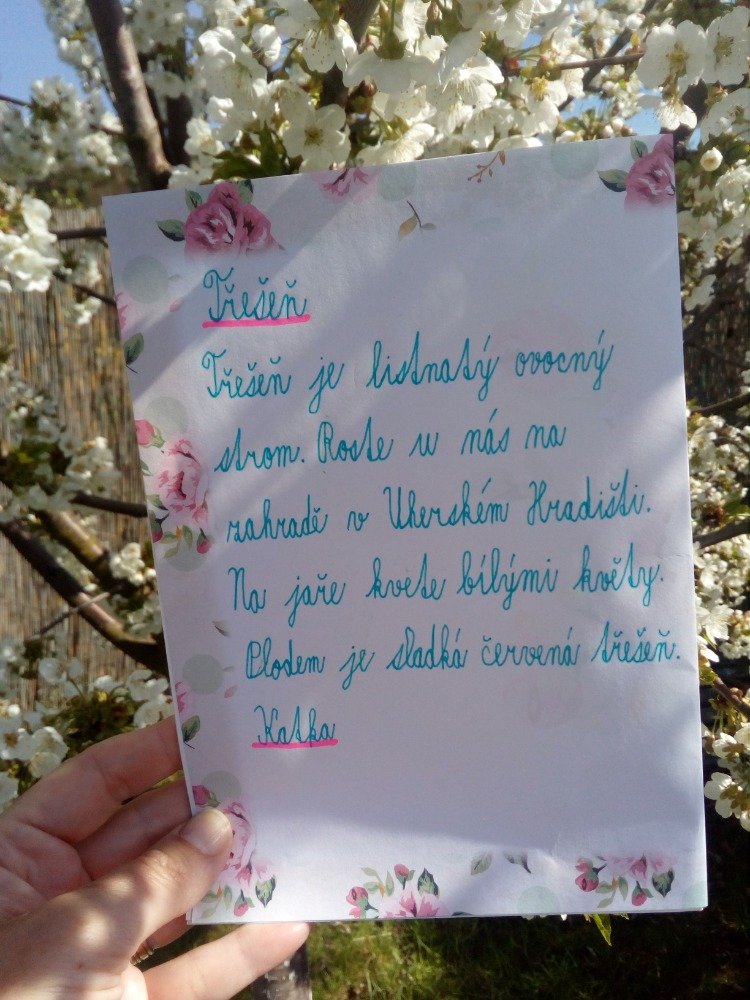 Třešeň
Třešeň je listnatý ovocný
strom. Roste u nás na
zahradě v Uherském Hradišti.
Na jaře kvete bílými květy.
Plodem je sladká červená třešeň.
Katka